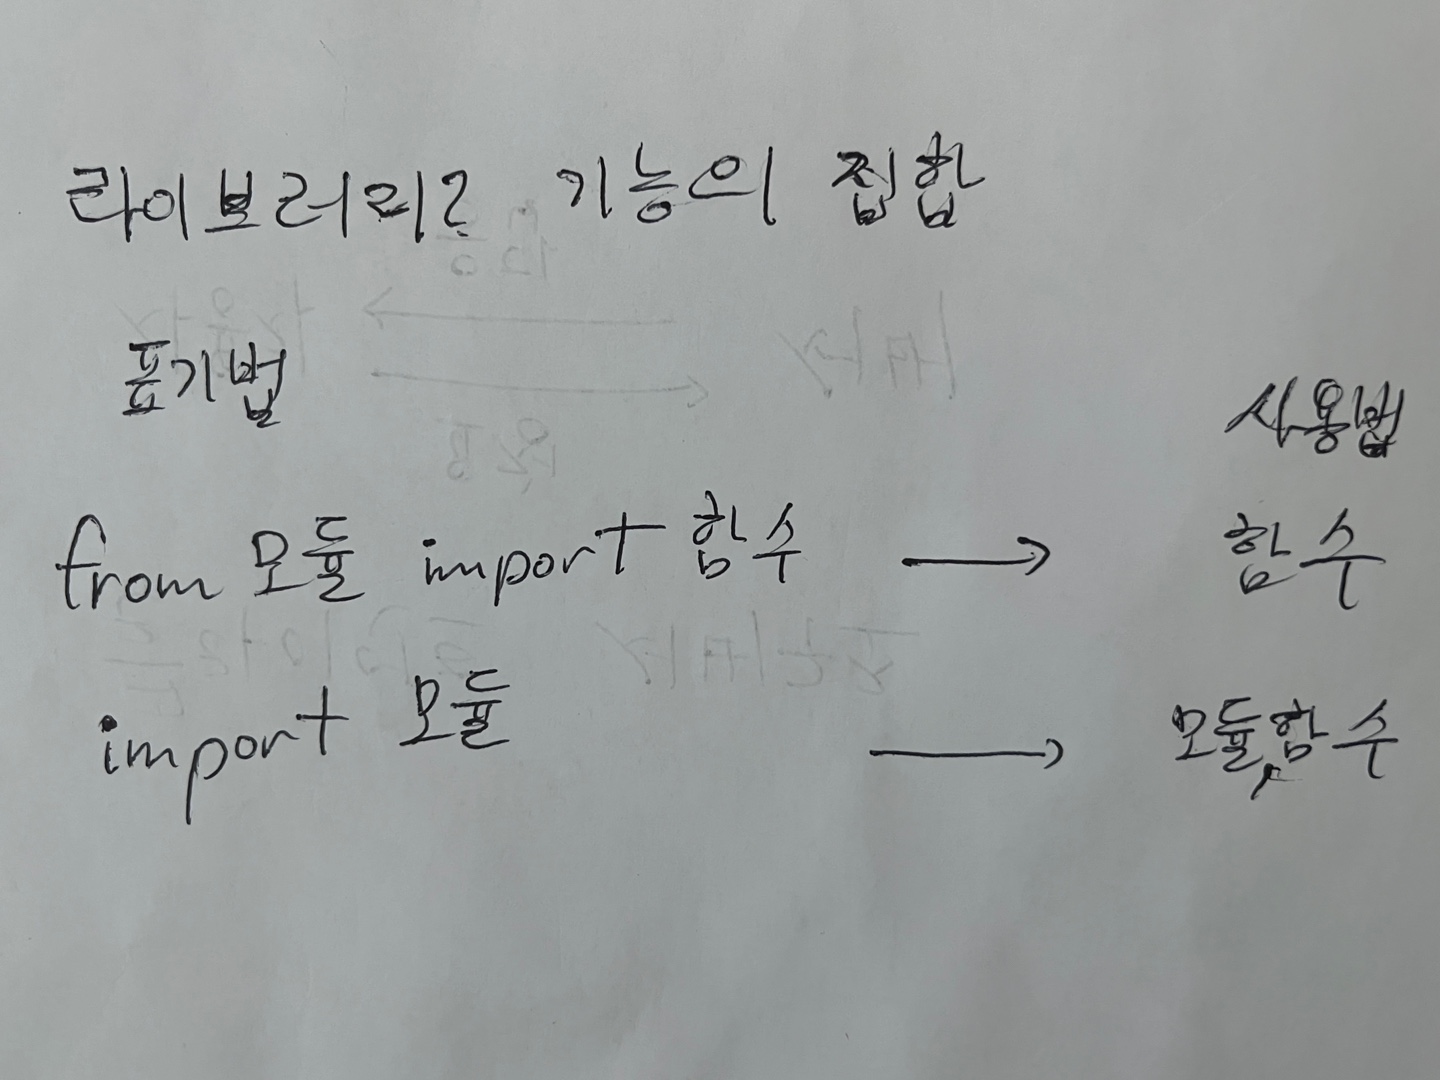 라이브러리? 기능의 집합
표기법 사용법
from 모듈 import 함수 → 함수
import 모듈 → 모듈.함수